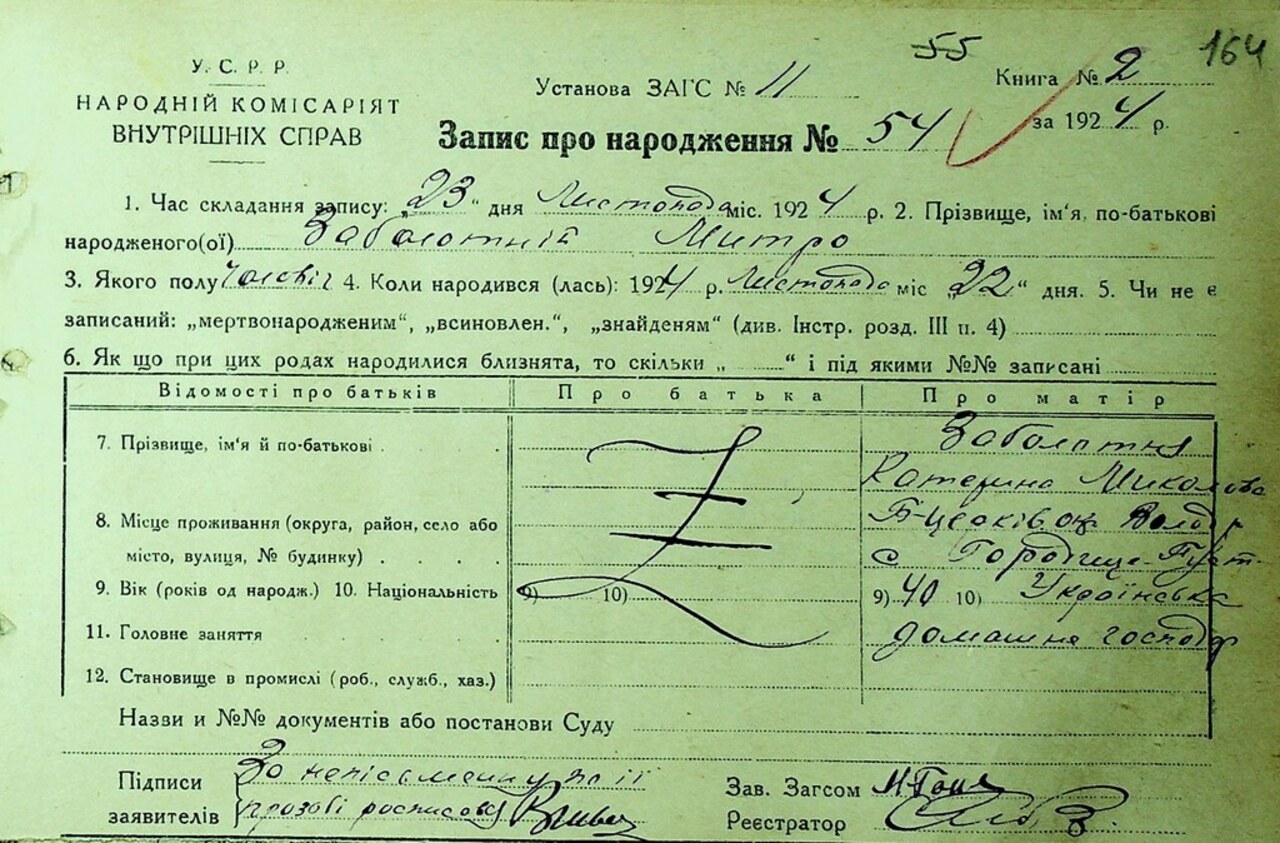 55
164
У. С. Р. Р.
НАРОДНІЙ КОМІСАРІЯТ
ВНУТРІШНІХ СПРАВ
Установа ЗАГС № 11
Книга № 2
за 1924 р.
Запис про народження № 54
1. Час складання запису: „23“ дня Листопада міс. 1924 р. 2. Прізвище, ім'я, по-батькові
народженого(ої) Заболотній Митро
3. Якого полу Чоловіч 4. Коли народився (лась): 1924 р. Листопада міс „22“ дня. 5. Чи не є
записаний: „мертвонародженим“, „всиновлен.“, „знайденям“ (див. Інстр. розд. III п. 4)
6. Як що при цих родах народилися близнята, то скільки „ “ і під якими №№ записані
Відомості про батьків Про батька Про матір
7. Прізвище, ім'я й по-батькові Заболотня
Катерина Миколова
8. Місце проживання (округа, район, село або Б-Церків. ок. Волод р
місто, вулиця, № будинку) с Городище-Пуст.
9. Вік (років од народж.) 10. Національність 9) 10) 9) 40 10) Українська
11. Головне заняття домашне господар
12. Становище в промислі (роб., служб., хаз.)
Назви и №№ документів або постанови Суду
Підписи За неписьменну по її
заявителів прозові росписовся
Зав. Загсом
Реєстратор